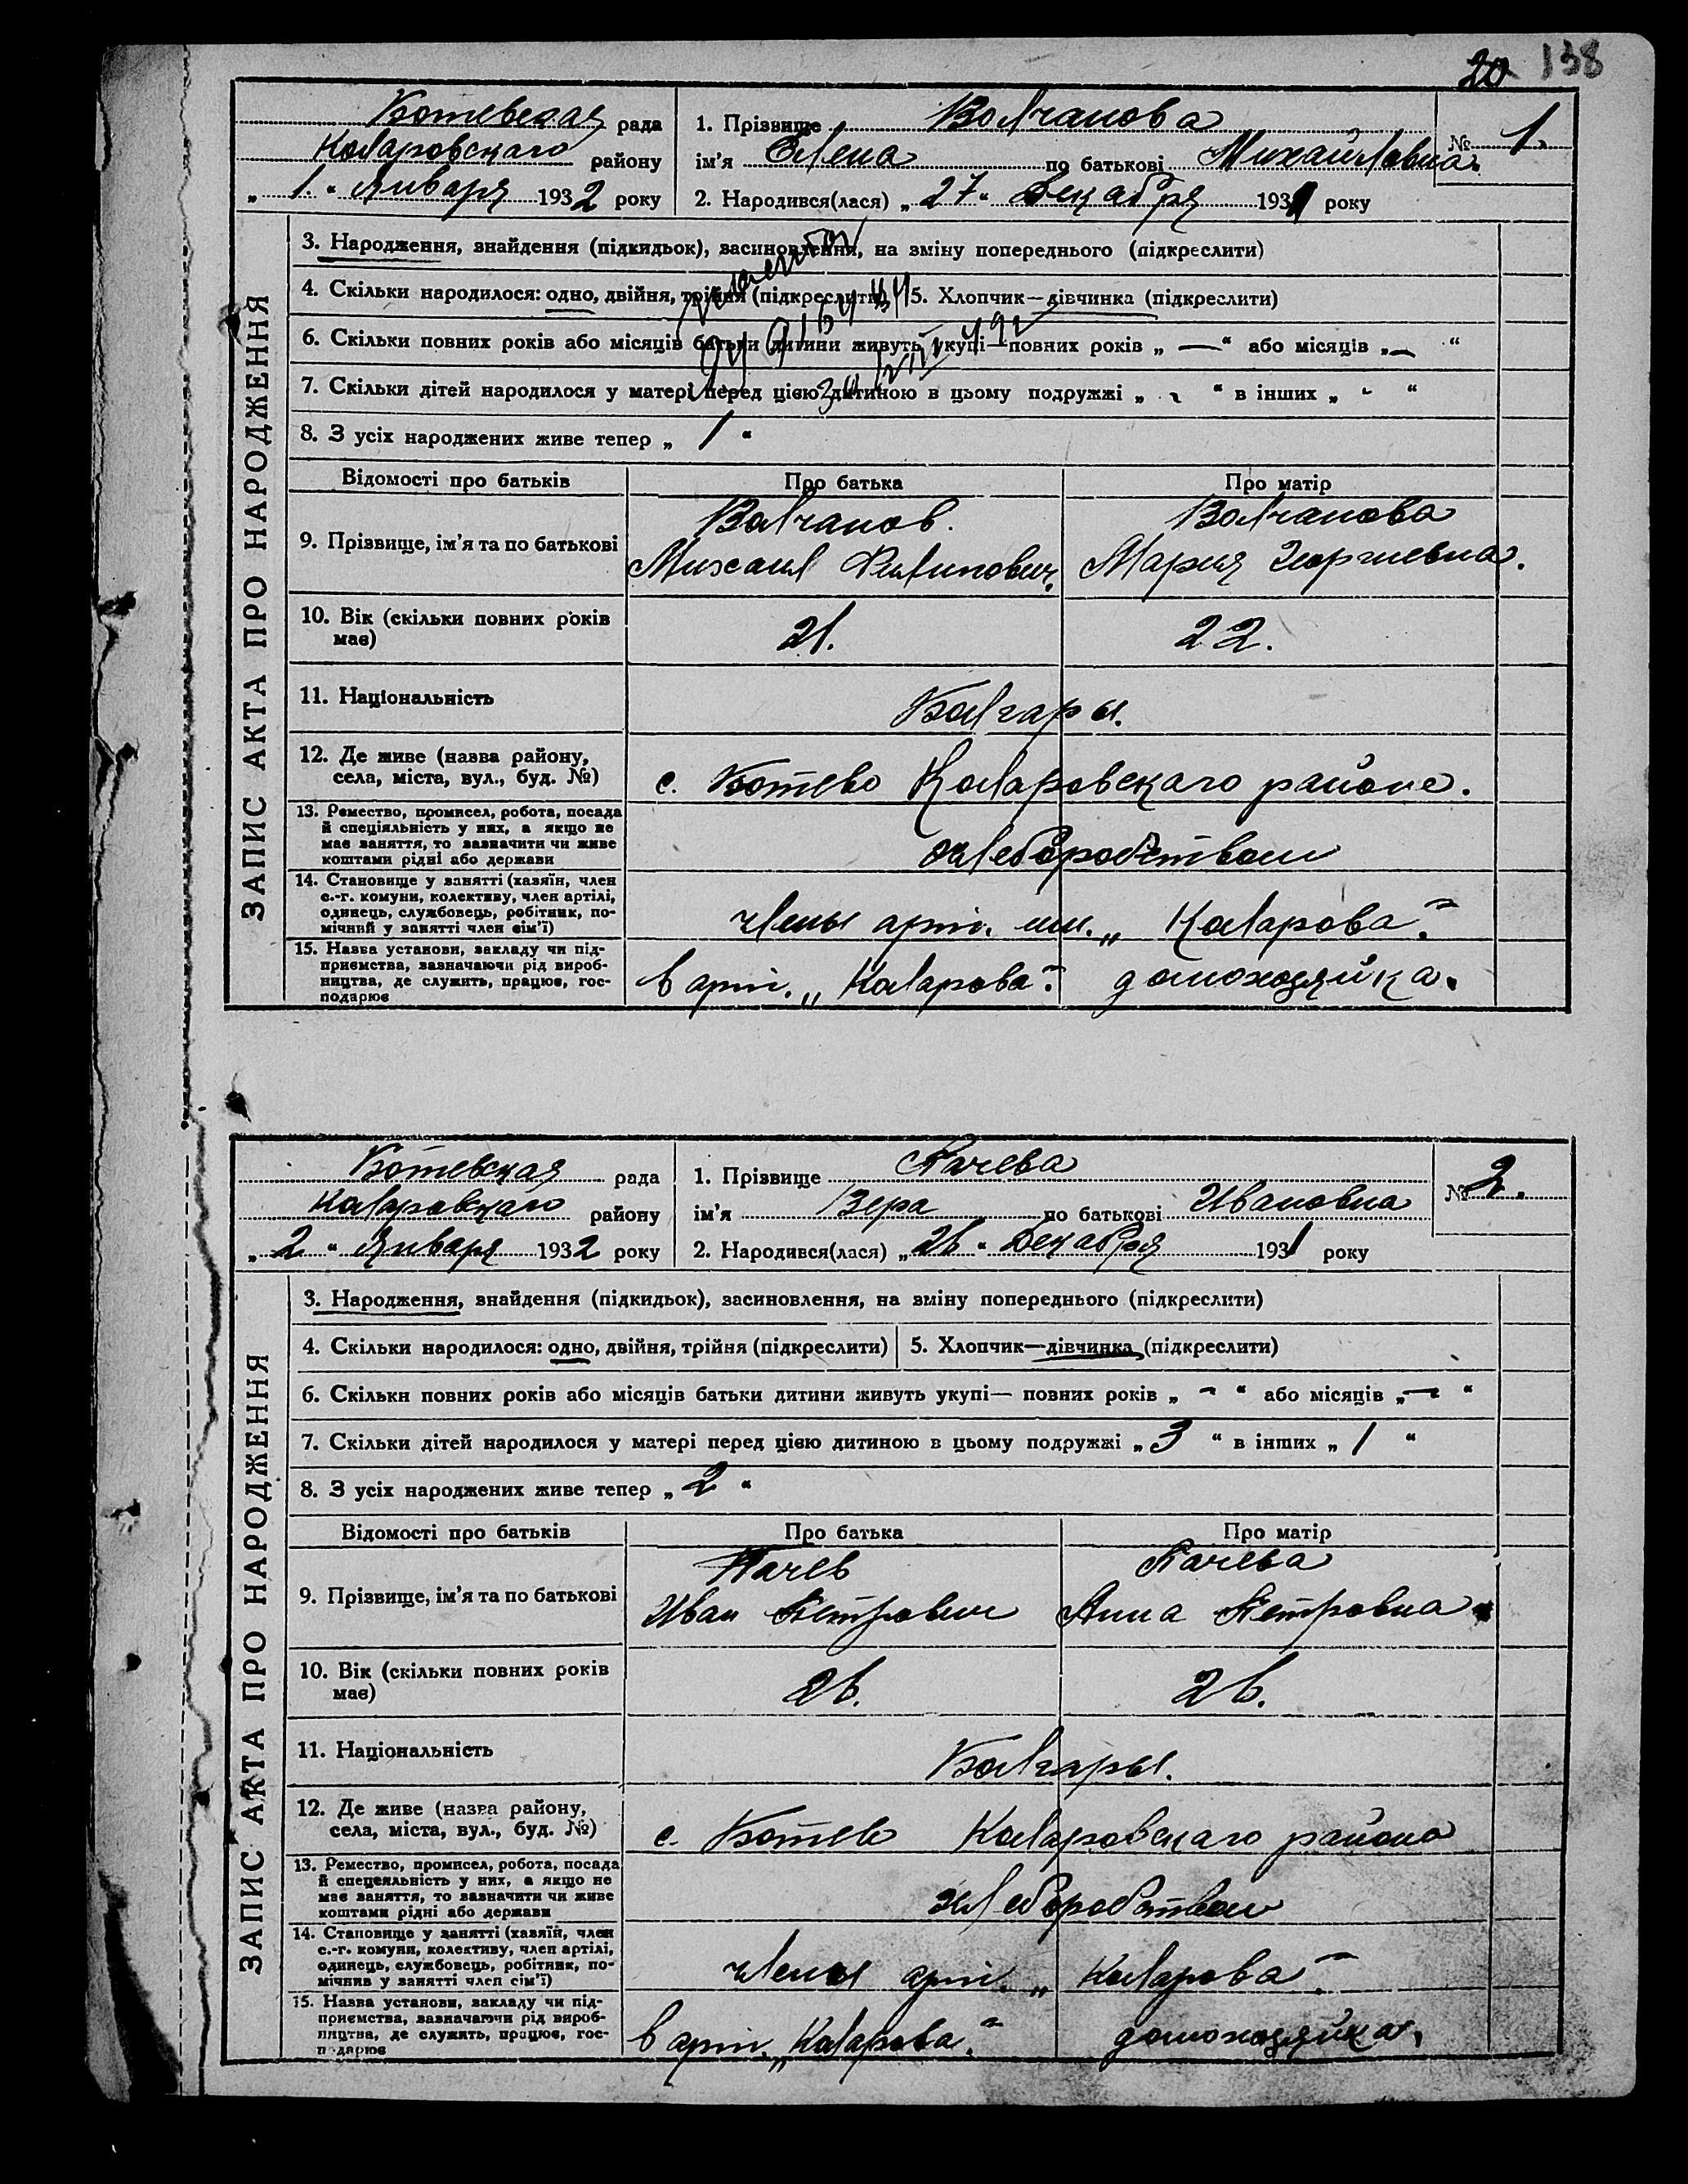 20 138
Ботевская рада
Коларовскаго району
„ 1. “ Января 1932 року
1. Прізвище Волчанова
ім'я Елена по батькові Михайловна.
2. Народився(лася) „ 27 “ Декабря 1931 року
№ 1.
ЗАПИС АКТА ПРО НАРОДЖЕННЯ
3. Народження, знайдення (підкидьок), засиновлення, на зміну попереднього (підкреслити)
4. Скільки народилося: одно, двійня, трійня (підкреслити) 5. Хлопчик—дівчинка (підкреслити)
6. Скільки повних років або місяців батьки дитини живуть укупі—повних років „ — “ або місяців „ — “
7. Скільки дітей народилося у матері перед цією дитиною в цьому подружжі „ “ в інших „ - “
8. З усіх народжених живе тепер „ 1 “
Відомості про батьків Про батька Про матір
9. Прізвище, ім'я та по батькові
Волчанов.
Михаил Филипович.
Волчанова
Мария Георгиевна.
10. Вік (скільки повних років
має)
21. 22.
11. Національність Болгары.
12. Де живе (назва району,
села, міста, вул., буд. №)
с. Ботево Коларовскаго района.
13. Ремество, промисел, робота, посада
й спеціяльність у них, а якщо не
має заняття, то зазначити чи живе
коштами рідні або держави
хлеборобством
14. Становище у занятті (хазяїн, член
с.-г. комуни, колективу, член артілі,
одинець, службовець, робітник, по-
мічний у занятті член сім'ї)
члены арт. им. „ Коларова“.
15. Назва установи, закладу чи під-
приємства, зазначаючи рід вироб-
ництва, де служить, працює, гос-
подарює
в арт. „ Коларова“. домохозяйка.
Ботевская рада
Коларовскаго району
„ 2 “ Января 1932 року
1. Прізвище Пачева
ім'я Вера по батькові Ивановна
2. Народився(лася) „ 26 “ Декабря 1931 року
№ 2.
ЗАПИС АКТА ПРО НАРОДЖЕННЯ
3. Народження, знайдення (підкидьок), засиновлення, на зміну попереднього (підкреслити)
4. Скільки народилося: одно, двійня, трійня (підкреслити) 5. Хлопчик—дівчинка (підкреслити)
6. Скільки повних років або місяців батьки дитини живуть укупі— повних років „ — “ або місяців „ — “
7. Скільки дітей народилося у матері перед цією дитиною в цьому подружжі „ 3 “ в інших „ 1 “
8. З усіх народжених живе тепер „ 2 “
Відомості про батьків Про батька Про матір
9. Прізвище, ім'я та по батькові
Пачев
Иван Петрович
Пачева
Анна Петровна
10. Вік (скільки повних років
має)
26. 26.
11. Національність Болгары.
12. Де живе (назва району,
села, міста, вул., буд. №)
с. Ботево Коларовскаго района
13. Ремество, промисел, робота, посада
й спецеяльність у них, а якщо не
має заняття, то зазначити чи живе
коштами рідні або держави
хлеборобством
14. Становище у занятті (хазяїн, член
с.-г. комуни, колективу, член артілі,
одинець, службовець, робітник, по-
мічник у занятті член сім'ї)
члены арт. „ Коларова“.
15. Назва установи, закладу чи під-
приємства, зазначаючи рід вироб-
ництва, де служить, працює, гос-
подарює
в арт. „Коларова“. домохозяйка.